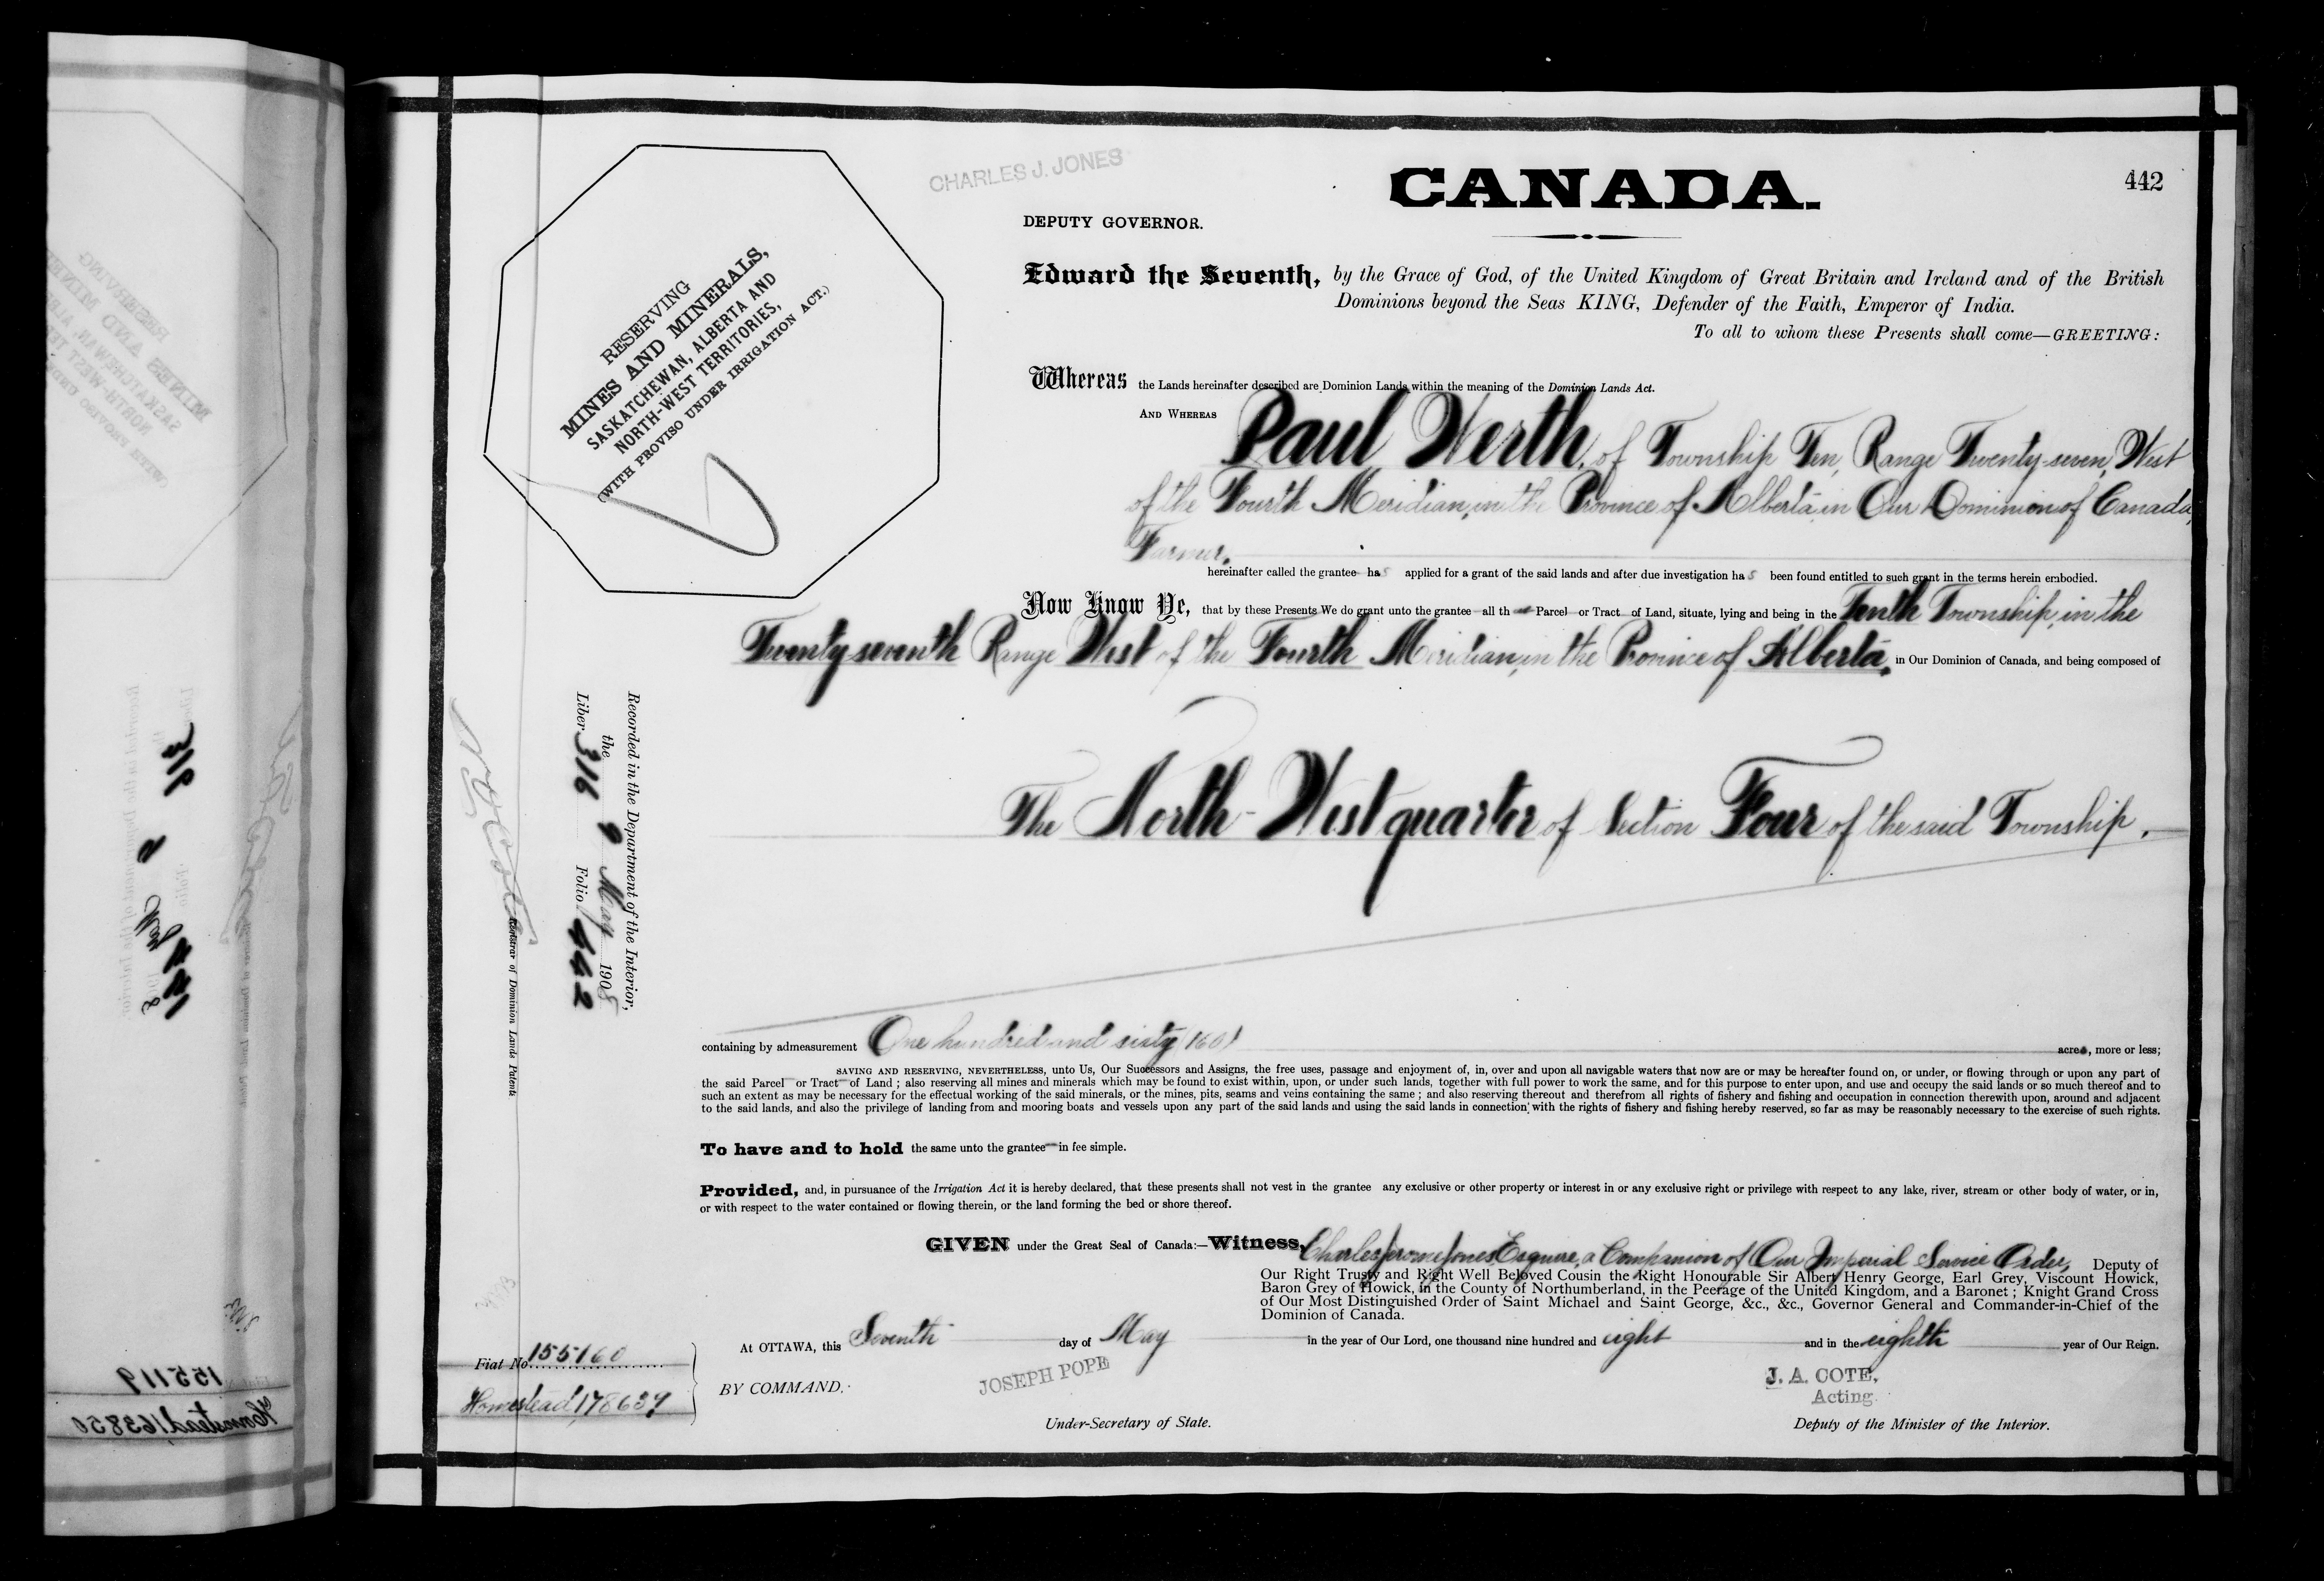 442
CHARLES J. JONES
CANADA.
DEPUTY GOVERNOR.
RESERVING
MINES AND MINERALS,
SASKATCHEWAN, ALBERTA AND
NORTH-WEST TERRITORIES,
(WITH PROVISO UNDER IRRIGATION ACT.)
Edward the Seventh, by the Grace of God, of the United Kingdom of Great Britain and Ireland and of the British
Dominions beyond the Seas KING, Defender of the Faith, Emperor of India.
To all to whom these Presents shall come—GREETING:
Whereas the Lands hereinafter described are Dominion Lands within the meaning of the Dominion Lands Act.
AND WHEREAS Paul Werth, of Township Ten, Range Twenty-seven, West
of the Fourth Meridian, in the Province of Alberta in Our Dominion of Canada,
Farmer,
hereinafter called the grantee has applied for a grant of the said lands and after due investigation has been found entitled to such grant in the terms herein embodied.
Now Know Ye, that by these Presents We do grant unto the grantee all that Parcel or Tract of Land, situate, lying and being in the Tenth Township, in the
Twenty seventh Range West of the Fourth Meridian, in the Province of Alberta, in Our Dominion of Canada, and being composed of
The North-West quarter of Section Four of the said Township.
Recorded in the Department of the Interior,
the 9 May 1908
Liber 316 Folio 442
Registrar of Dominion Lands Patents
containing by admeasurement One hundred and sixty (160) acres, more or less;
SAVING AND RESERVING, NEVERTHELESS, unto Us, Our Successors and Assigns, the free uses, passage and enjoyment of, in, over and upon all navigable waters that now are or may be hereafter found on, or under, or flowing through or upon any part of
the said Parcel or Tract of Land; also reserving all mines and minerals which may be found to exist within, upon, or under such lands, together with full power to work the same, and for this purpose to enter upon, and use and occupy the said lands or so much thereof and to
such an extent as may be necessary for the effectual working of the said minerals, or the mines, pits, seams and veins containing the same; and also reserving thereout and therefrom all rights of fishery and fishing and occupation in connection therewith upon, around and adjacent
to the said lands, and also the privilege of landing from and mooring boats and vessels upon any part of the said lands and using the said lands in connection with the rights of fishery and fishing hereby reserved, so far as may be reasonably necessary to the exercise of such rights.
To have and to hold the same unto the grantee in fee simple.
Provided, and, in pursuance of the Irrigation Act it is hereby declared, that these presents shall not vest in the grantee any exclusive or other property or interest in or any exclusive right or privilege with respect to any lake, river, stream or other body of water, or in,
or with respect to the water contained or flowing therein, or the land forming the bed or shore thereof.
GIVEN under the Great Seal of Canada:—Witness, Charles Jerome Jones, Esquire, a Companion of Our Imperial Service Order, Deputy of
Our Right Trusty and Right Well Beloved Cousin the Right Honourable Sir Albert Henry George, Earl Grey, Viscount Howick,
Baron Grey of Howick, in the County of Northumberland, in the Peerage of the United Kingdom, and a Baronet; Knight Grand Cross
of Our Most Distinguished Order of Saint Michael and Saint George, &c., &c., Governor General and Commander-in-Chief of the
Dominion of Canada.
At OTTAWA, this Seventh day of May in the year of Our Lord, one thousand nine hundred and eight and in the eighth year of Our Reign.
Fiat No. 155160
Homestead 178639
BY COMMAND,
JOSEPH POPE
Under-Secretary of State.
J. A. COTE,
Acting
Deputy of the Minister of the Interior.
155119
Homestead 163850